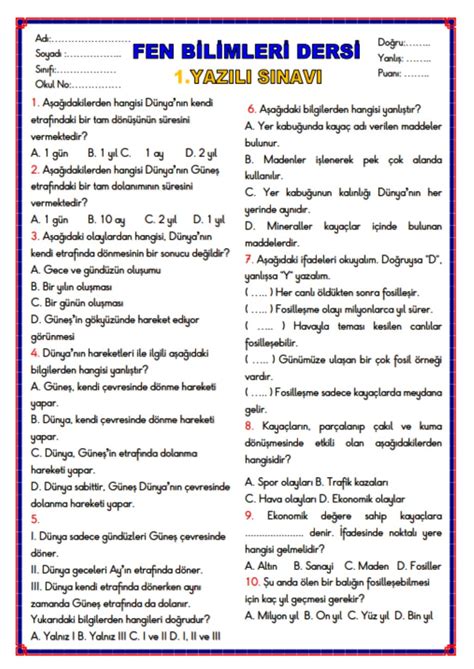 Adı:........................
Soyadı :................
Sınıfı:........................
Okul No:...............
FEN BİLİMLERİ DERSİ
1.YAZILI SINAVI
Doğru:........
Yanlış: ........
Puanı: ........
1. Aşağıdakilerden hangisi Dünya'nın kendi
etrafındaki bir tam dönüşünün süresini
vermektedir?
A. 1 gün B. 1 yıl C. 1 ay D. 2 yıl
2. Aşağıdakilerden hangisi Dünya'nın Güneş
etrafındaki bir tam dolanımının süresini
vermektedir?
A. 1 gün B. 10 ay C. 2 yıl D. 1 yıl
3. Aşağıdaki olaylardan hangisi, Dünya'nın
kendi etrafında dönmesinin bir sonucu değildir?
A. Gece ve gündüzün oluşumu
B. Bir yılın oluşması
C. Bir günün oluşması
D. Güneş'in gökyüzünde hareket ediyor
görünmesi
4. Dünya'nın hareketleri ile ilgili aşağıdaki
bilgilerden hangisi yanlıştır?
A. Güneş, kendi çevresinde dönme hareketi
yapar.
B. Dünya, kendi çevresinde dönme hareketi
yapar.
C. Dünya, Güneş'in etrafında dolanma
hareketi yapar.
D. Dünya sabittir, Güneş Dünya'nın çevresinde
dolanma hareketi yapar.
5.
I. Dünya sadece gündüzleri Güneş çevresinde
döner.
II. Dünya geceleri Ay'ın etrafında döner.
III. Dünya kendi etrafında dönerken aynı
zamanda Güneş etrafında da dolanır.
Yukarıdaki bilgilerden hangileri doğrudur?
A. Yalnız I B. Yalnız III C. I ve II D. I, II ve III
6. Aşağıdaki bilgilerden hangisi yanlıştır?
A. Yer kabuğunda kayaç adı verilen maddeler
bulunur.
B. Madenler işlenerek pek çok alanda
kullanılır.
C. Yer kabuğunun kalınlığı Dünya'nın her
yerinde aynıdır.
D. Mineraller kayaçlar içinde bulunan
maddelerdir.
7. Aşağıdaki ifadeleri okuyalım. Doğruysa "D",
yanlışsa "Y" yazalım.
( ..... ) Her canlı öldükten sonra fosilleşir.
( ..... ) Fosilleşme olayı milyonlarca yıl sürer.
( ..... ) Havayla teması kesilen canlılar
fosilleşebilir.
( ..... ) Günümüze ulaşan bir çok fosil örneği
vardır.
( ..... ) Fosilleşme sadece kayaçlarda meydana
gelir.
8. Kayaçların, parçalanıp çakıl ve kuma
dönüşmesinde etkili olan aşağıdakilerden
hangisidir?
A. Spor olayları B. Trafik kazaları
C. Hava olayları D. Ekonomik olaylar
9. Ekonomik değere sahip kayaçlara
........................ denir. İfadesinde noktalı yere
hangisi gelmelidir?
A. Altın B. Sanayi C. Maden D. Fosiller
10. Şu anda ölen bir balığın fosilleşebilmesi
için kaç yıl geçmesi gerekir?
A. Milyon yıl B. On yıl C. Yüz yıl D. Bin yıl